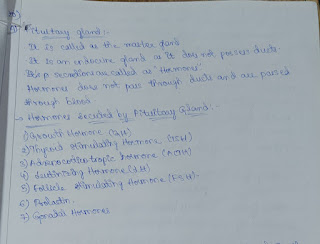 a)
Pituitary gland:-
It is called as the master gland
It is an endocrine gland as it does not possess ducts.
secretions are called as "Hormones"
Hormones does not pass through ducts and are passed
through blood
→ Hormones Secreted by Pituitary Gland:-
1) Growth Hormone (GH)
2) Thyroid stimulating Hormone (TSH)
3) Adrenocorticotropic hormone (ACTH)
4) Luitinising Hormone (LH)
5) Follicle stimulating Hormone (FSH).
6) Prolactin.
7) Gonadal Hormones